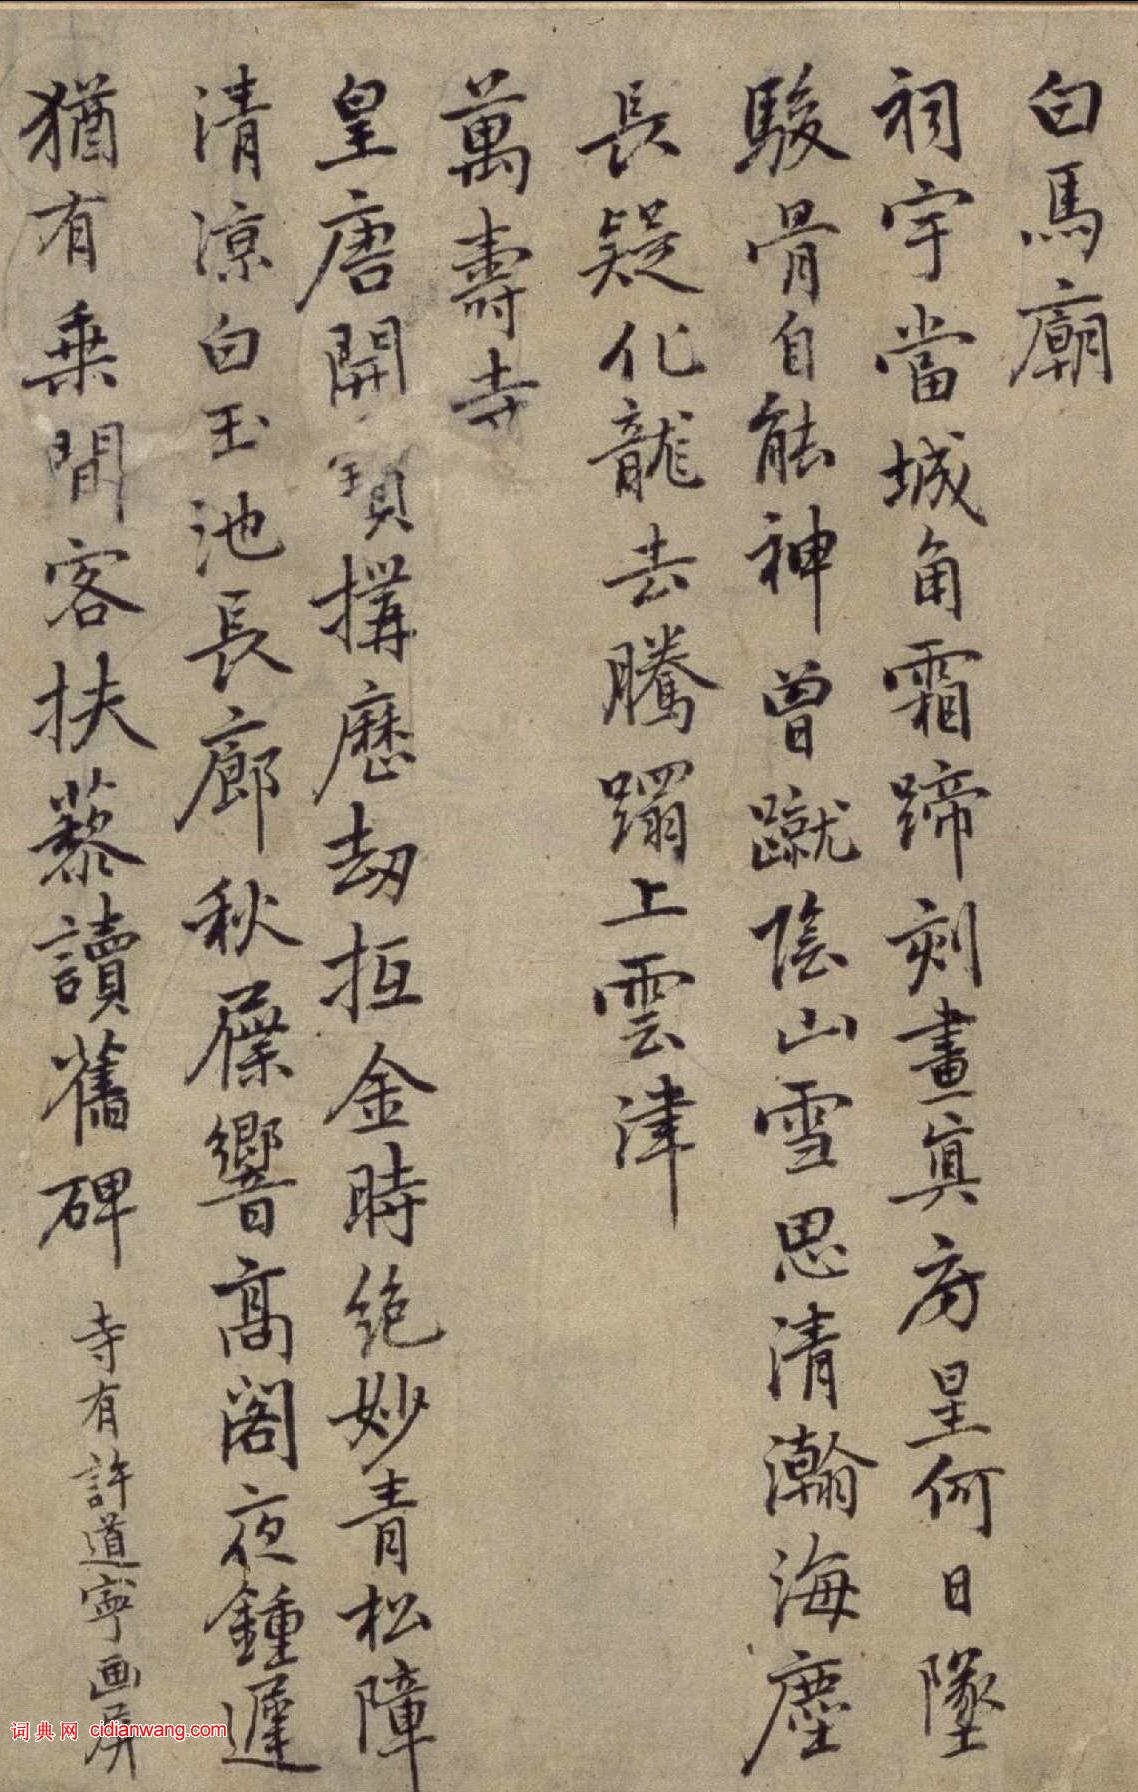 白馬廟
祠宇當城角霜蹄刻畫真房星何日墜
駿骨自能神曾蹴陰山雪思清瀚海塵
長疑化龍去騰蹋上雲津
萬壽寺
皇唐開寶構歷劫抵金時絶妙青松障
清涼白玉池長廊秋屧響高閣夜鍾遲
猶有乗閒客扶藜讀舊碑 寺有許道寧画屏
词典网 cidianwang.com